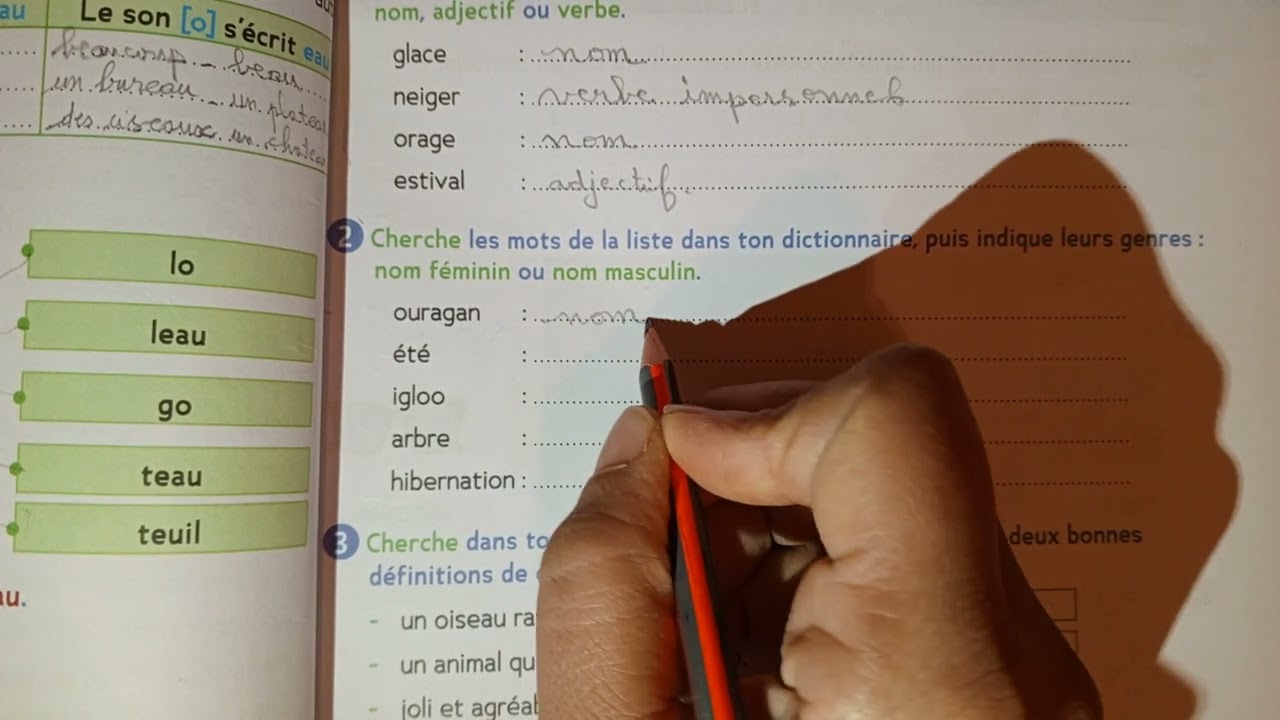 au
Le son [o] s'écrit eau
beaucoup - beau
un bureau - un plateau
des oiseaux un chateau
lo
leau
go
teau
teuil
au.
nom, adjectif ou verbe.
glace : nom
neiger : verbe impersonnel
orage : nom
estival : adjectif.
2 Cherche les mots de la liste dans ton dictionnaire, puis indique leurs genres :
nom féminin ou nom masculin.
ouragan : nom
été :
igloo :
arbre :
hibernation :
3 Cherche dans to deux bonnes
définitions de
- un oiseau ra
- un animal qu
- joli et agréab